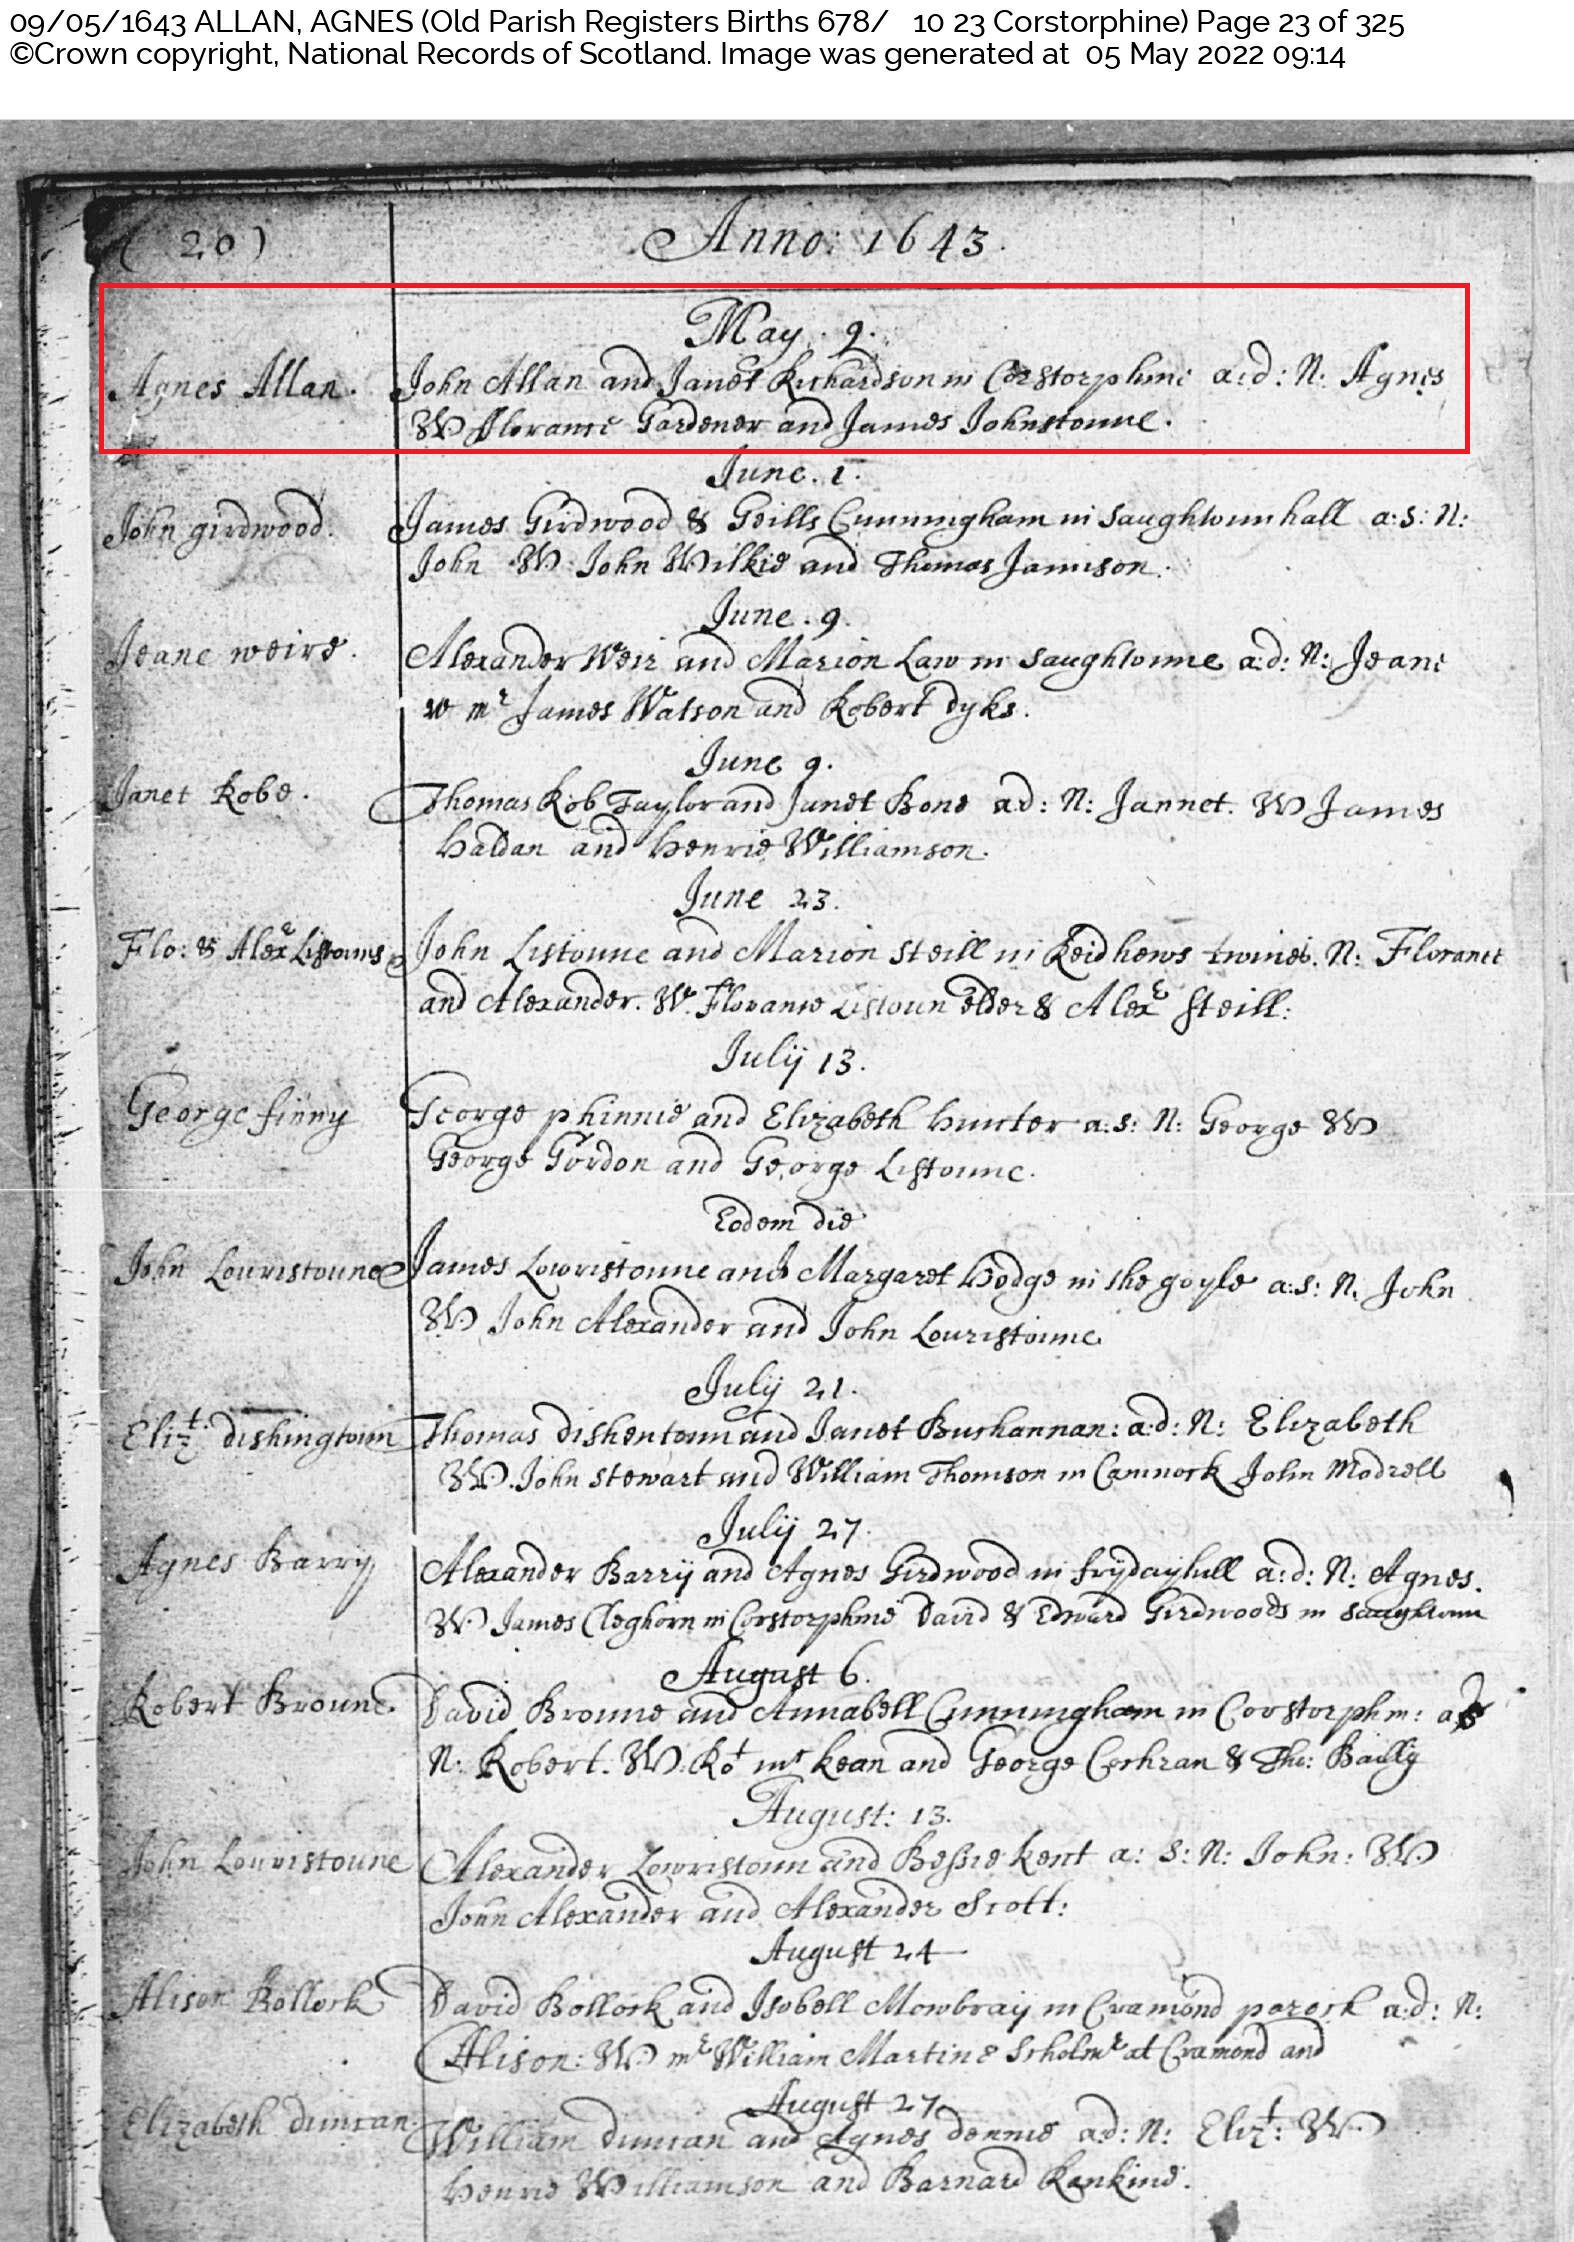 09/05/1643 ALLAN, AGNES (Old Parish Registers Births 678/ 10 23 Corstorphine) Page 23 of 325
©Crown copyright, National Records of Scotland. Image was generated at 05 May 2022 09:14
(20) Anno: 1643.
May. 9.
Agnes Allan. John Allan and Janet Richardson in Corstorphine a:d: N: Agnes
W Florance Gardener and James Johnstoune.
June. 1.
John girdwood. James Girdwood & Geills Cunningham in Saughtounhall a:s: N:
John W: John Wilkie and Thomas Jamison.
June. 9.
Jeane weire. Alexander Weir and Marion Law in Saughtoune a:d: N: Jeane
w mr James Watson and Robert dyks.
June 9.
Janet Robe. Thomas Rob Taylor and Janet Bone a:d: N: Jannet. W James
Haldan and Henrie Williamson.
June 23.
Flo: & Alexr Listouns John Listoune and Marion Steill in Reidhews twines. N: Florance
and Alexander. W. Florance Listoun elder & Alexr Steill:
Julij 13.
George finny George phinnie and Elizabeth Hunter a:s: N: George W
George Gordon and George Listoune.
Eodem die
John Louristoune James Lowristoune and Margaret Hodge in the goyle a:s: N. John
W John Alexander and John Louristoune
Julij 21.
Elizt: dishingtoun Thomas dishentoun and Janet Buchannan: a:d: N: Elizabeth
W. John Stewart and William Thomson in Camnock John Modrell
Julij 27.
Agnes Barry Alexander Barrij and Agnes Girdwood in frydayhill a:d: N: Agnes.
W James Cleghorn in Corstorphine David & Edward Girdwoods in Saughtoun
August 6.
Robert Broune. David Broune and Annabell Cunningham in Corstorphin: a
N: Robert. W: Rot mr kean and George Cochran & Tho: Bailly
August: 13.
John Louristoune Alexander Lowristoun and Bessie kent a: s: N: John: W
John Alexander and Alexander Scott:
August 24
Alison Rollock David Rollock and Isobell Mowbraij in Cramond paroch a:d: N:
Alison: W mr William Martine Scholmr at Cramond and
August 27
Elizabeth duncan. William duncan and Agnes dennie a:d: N: Elizt: W
Henrie Williamson and Barnard Rankine.